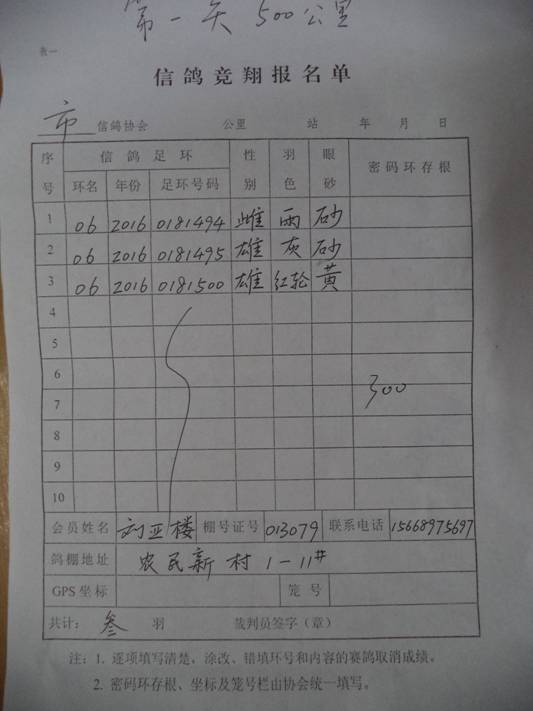 第一天 500公里
表一
信鸽竞翔报名单
市 信鸽协会 公里 站 年 月 日
序号 信鸽足环 性别 羽色 眼砂 密码环存根
环名 年份 足环号码
1 06 2016 0181494 雌 雨 砂
2 06 2016 0181495 雄 灰 砂
3 06 2016 0181500 雄 红轮 黄
4
5
6
7 300
8
9
10
会员姓名 刘亚楼 棚号证号 013079 联系电话 15668975697
鸽棚地址 农民新村1-11#
GPS坐标 笼号
共计: 叁 羽 裁判员签字(章)
注: 1. 逐项填写清楚,涂改、错填环号和内容的赛鸽取消成绩。
2. 密码环存根、坐标及笼号栏由协会统一填写。